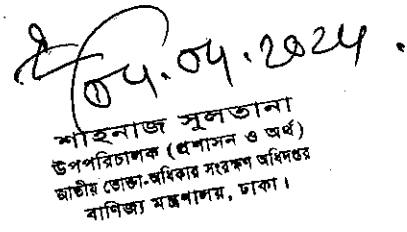 ০৫.০৫.২০২৫.
শাহনাজ সুলতানা
উপপরিচালক (প্রশাসন ও অর্থ)
জাতীয় ভোক্তা-অধিকার সংরক্ষণ অধিদপ্তর
বাণিজ্য মন্ত্রণালয়, ঢাকা।